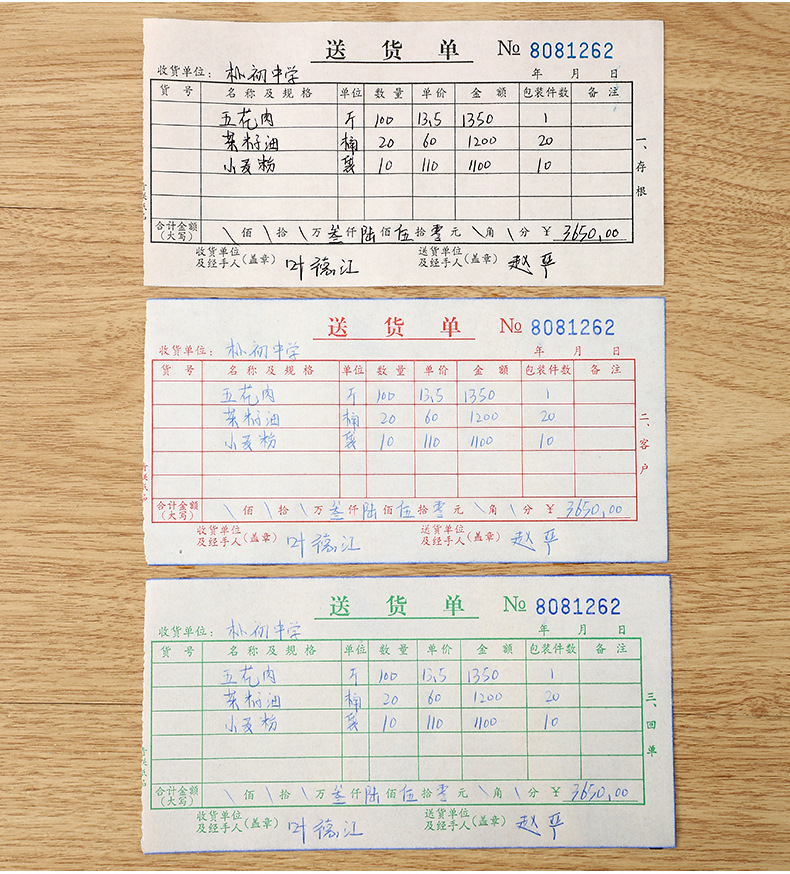 送货单 № 8081262
收货单位：朴初中学 年 月 日
货号 名称及规格 单位 数量 单价 金额 包装件数 备注
五花肉 斤 100 13.5 1350 1
菜籽油 桶 20 60 1200 20
小麦粉 袋 10 110 1100 10
一、存根
合计金额(大写) \佰\拾\万叁仟陆佰伍拾零元\角\分 ¥ 3650.00
收货单位及经手人(盖章) 叶德江 送货单位及经手人(盖章) 赵平
送货单 № 8081262
收货单位：朴初中学 年 月 日
货号 名称及规格 单位 数量 单价 金额 包装件数 备注
五花肉 斤 100 13.5 1350 1
菜籽油 桶 20 60 1200 20
小麦粉 袋 10 110 1100 10
二、客户
合计金额(大写) \佰\拾\万叁仟陆佰伍拾零元\角\分 ¥ 3650.00
收货单位及经手人(盖章) 叶德江 送货单位及经手人(盖章) 赵平
送货单 № 8081262
收货单位：朴初中学 年 月 日
货号 名称及规格 单位 数量 单价 金额 包装件数 备注
五花肉 斤 100 13.5 1350 1
菜籽油 桶 20 60 1200 20
小麦粉 袋 10 110 1100 10
三、回单
合计金额(大写) \佰\拾\万叁仟陆佰伍拾零元\角\分 ¥ 3650.00
收货单位及经手人(盖章) 叶德江 送货单位及经手人(盖章) 赵平